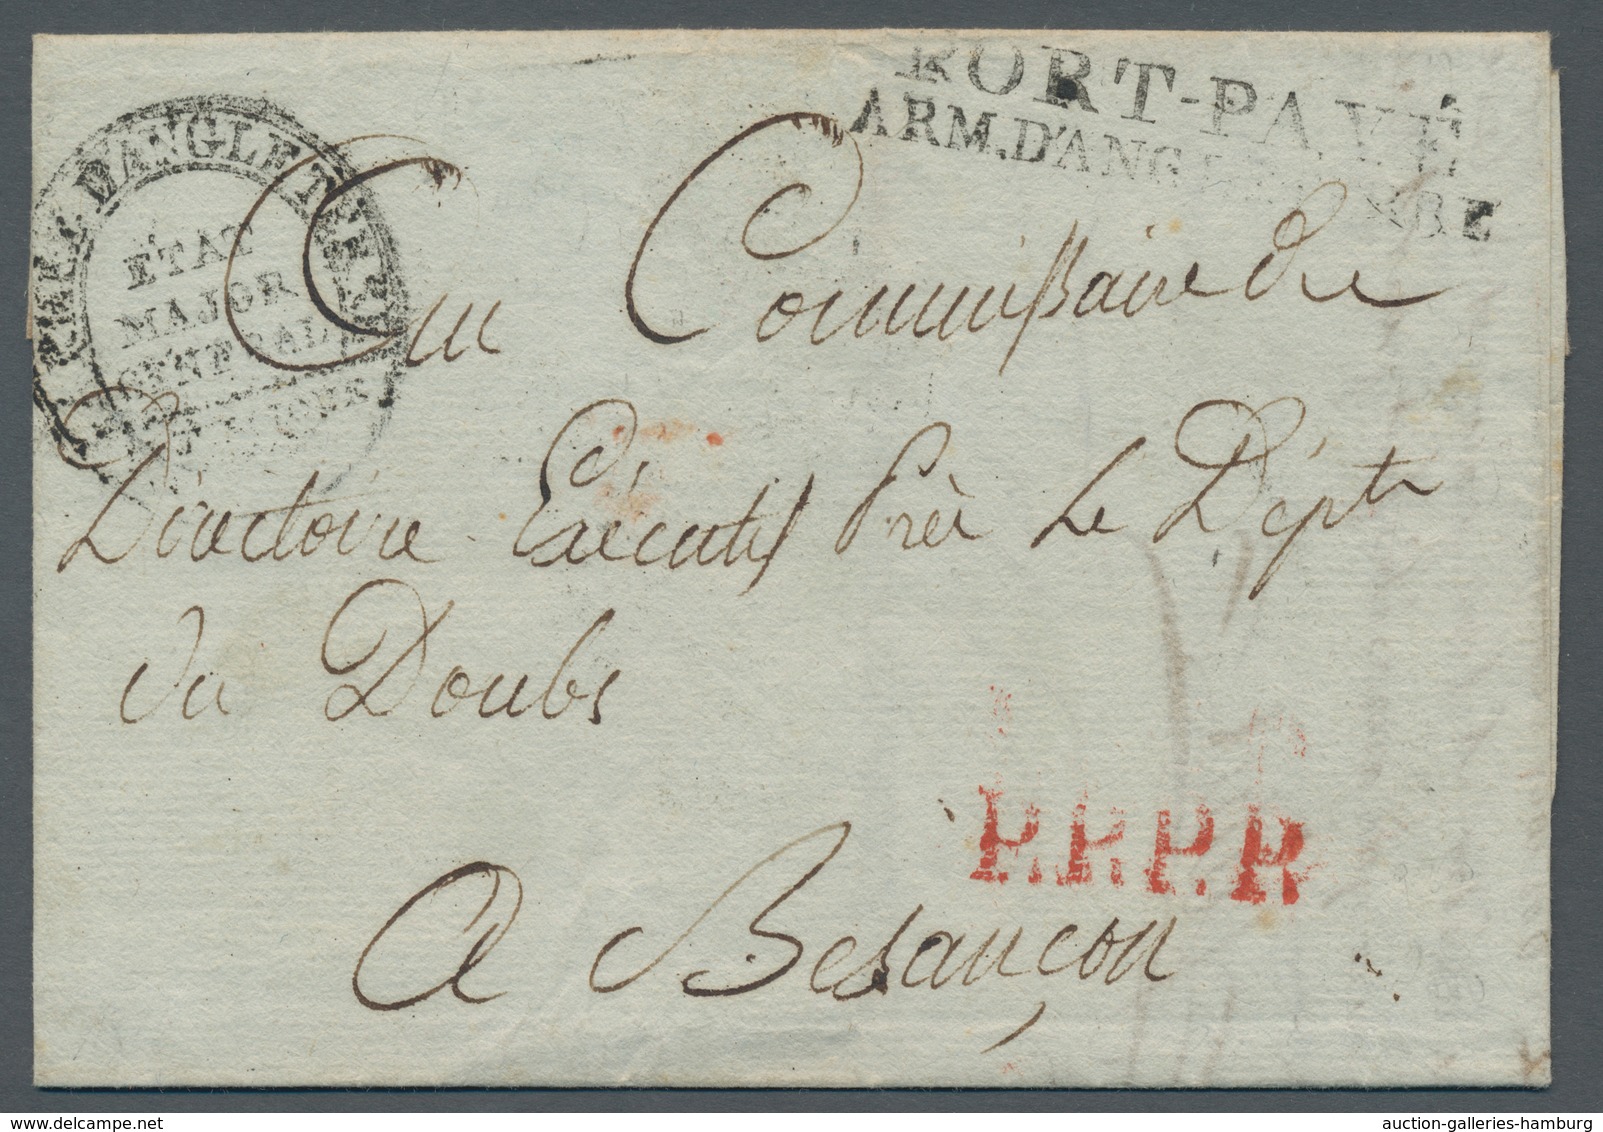 PORT-PAYÉ
ARM.D'ANG
D'ANGLETERRE
ETAT
MAJOR
GENERAL
Au Commissaire du
Directoire Exécutif Près Le Dépt
du Doubs
P.P.P.P.
A Besançon
auction-galleries-hamburg